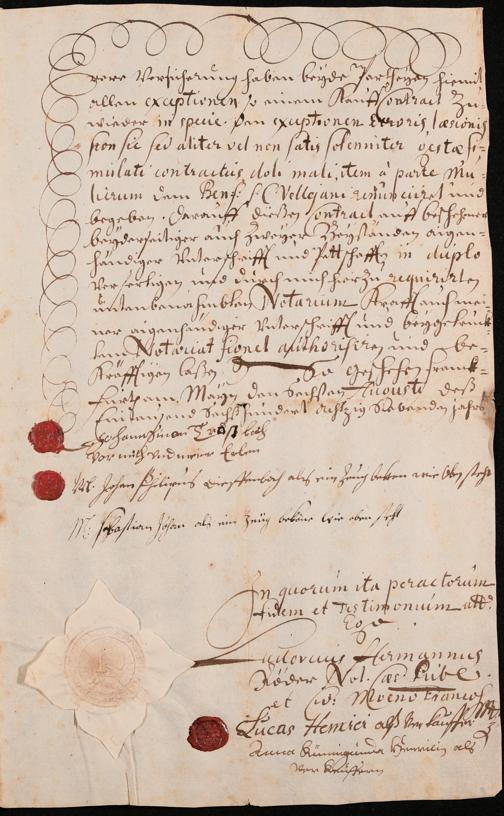 vere Versicherung haben beyde Partheyen hiemit
allen exceptionen so einem Kauff Contract zu-
wieder in specie den exceptionen Erroris, læsionis
sion sic sed aliter vel non satis solenniter gestæ si-
mulati contractus doli mali, item à parte Mu-
lierum dem Benf: SC Vellejani renunciret und
begeben. Darauff dießen Contract auff beschehener
beyderseitiger auch zweyer Beyständen aigen-
händiger Unterschrifft und Pittschafften in duplo
verfertigen und durch mich hierzu requirirten
untenbenahmbten Notarium Krafft auch mei-
ner aigenhändiger Unterschrifft und beygetruck-
tem Notariat Signet authorisiren und be-
kräfftigen laßen. So geschehen Franck-
furt am Mayn den Sechsten Augusti deß
Eintausend Sechßhundert achtzig Siebenden Jahrs
Johann Simon
vor mich und meine Erben
M. Johan Philipus als ein Zeug bekenn wie oben steht
M. Sebastian Johan als ein Zeug bekene wie oben steht
In quorum ita peractorum
fidem et Testimonium att.
Ego
Hermannus
Röder Not. Cæs. Publ.
et Civ: Moeno Francof
Lucas Henrici alß Verkauffer
Anna Künnigunda als
Verkäufferin